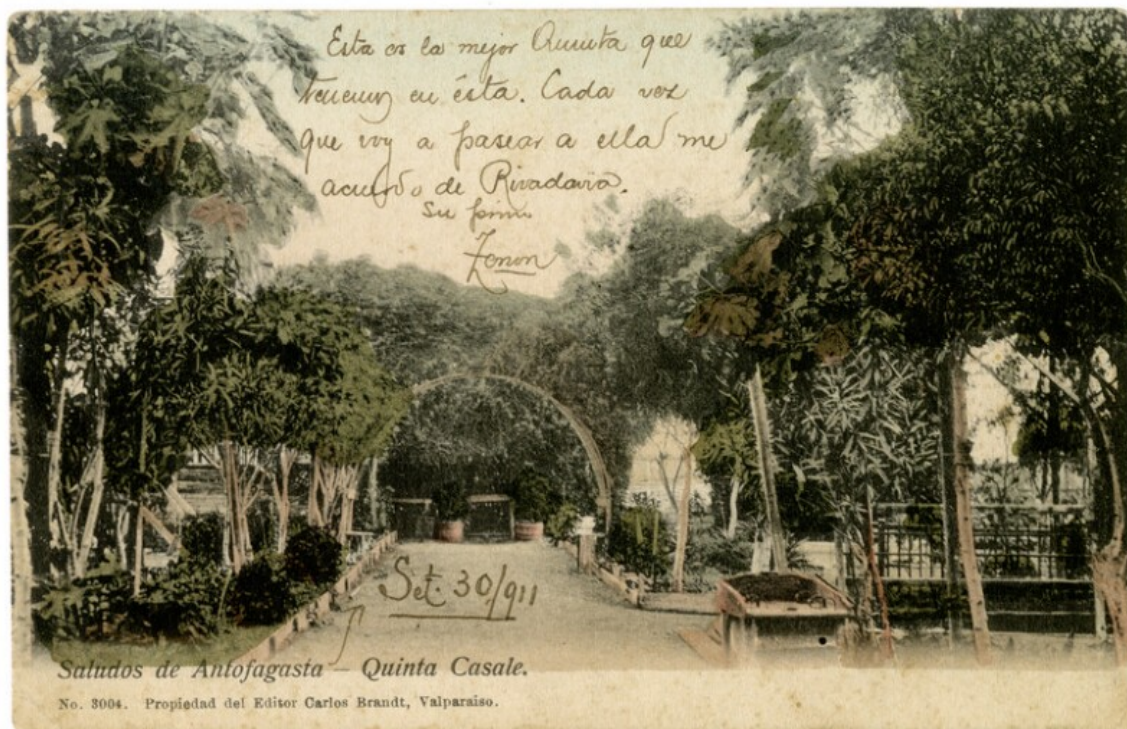 Esta es la mejor Quinta que
tenemos en ésta. Cada vez
que voy a pasear a ella me
acuerdo de Rivadavia.
Su primo
Zenon
Set. 30/911
Saludos de Antofagasta — Quinta Casale.
No. 3004. Propiedad del Editor Carlos Brandt, Valparaiso.